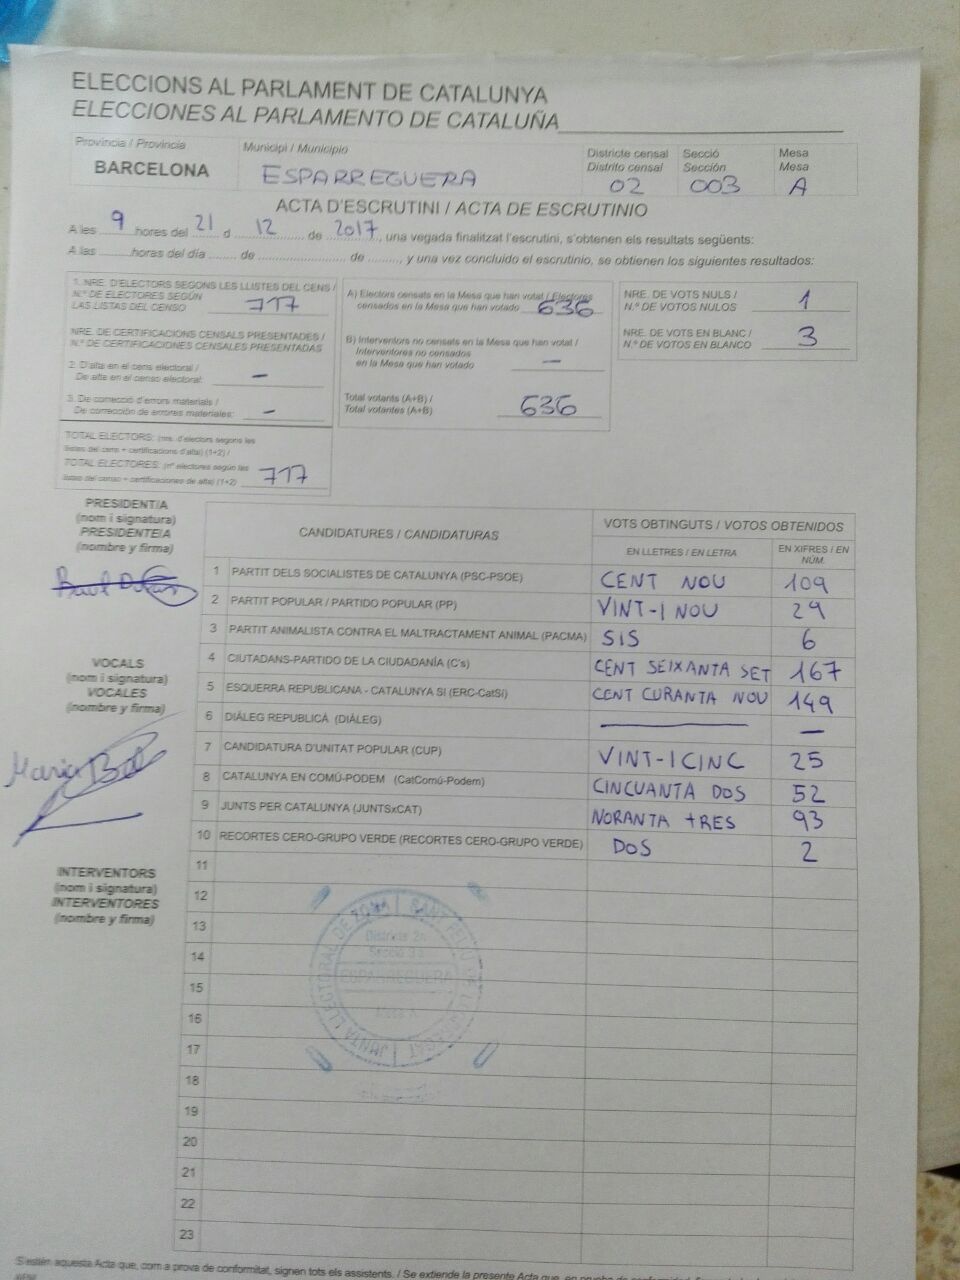 ELECCIONS AL PARLAMENT DE CATALUNYA
ELECCIONES AL PARLAMENTO DE CATALUÑA
Província / Provincia
BARCELONA
Municipi / Municipio
ESPARREGUERA
Districte censal
Distrito censal
02
Secció
Sección
003
Mesa
Mesa
A
ACTA D'ESCRUTINI / ACTA DE ESCRUTINIO
A les 9 hores del 21 d 12 de 2017, una vegada finalitzat l'escrutini, s'obtenen els resultats següents:
A las ........horas del día ........ de ........................ de ........, y una vez concluido el escrutinio, se obtienen los siguientes resultados:
1. NRE. D'ELECTORS SEGONS LES LLISTES DEL CENS /
N.º DE ELECTORES SEGÚN
LAS LISTAS DEL CENSO 717
NRE. DE CERTIFICACIONS CENSALS PRESENTADES /
N.º DE CERTIFICACIONES CENSALES PRESENTADAS
2. D'alta en el cens electoral /
De alta en el censo electoral: –
3. De correcció d'errors materials /
De corrección de errores materiales: –
TOTAL ELECTORS: (nre. d'electors segons les
llistes del cens + certificacions d'alta) (1+2) /
TOTAL ELECTORES: (nº electores según las
listas del censo + certificaciones de alta) (1+2) 717
A) Electors censats en la Mesa que han votat / Electores
censados en la Mesa que han votado 636
B) Interventors no censats en la Mesa que han votat /
Interventores no censados
en la Mesa que han votado —
Total votants (A+B) /
Total votantes (A+B) 636
NRE. DE VOTS NULS /
N.º DE VOTOS NULOS 1
NRE. DE VOTS EN BLANC /
N.º DE VOTOS EN BLANCO 3
PRESIDENT/A
(nom i signatura)
PRESIDENTE/A
(nombre y firma)
VOCALS
(nom i signatura)
VOCALES
(nombre y firma)
Maria
INTERVENTORS
(nom i signatura)
INTERVENTORES
(nombre y firma)
CANDIDATURES / CANDIDATURAS
VOTS OBTINGUTS / VOTOS OBTENIDOS
EN LLETRES / EN LETRA
EN XIFRES / EN NÚM.
1 PARTIT DELS SOCIALISTES DE CATALUNYA (PSC-PSOE) CENT NOU 109
2 PARTIT POPULAR / PARTIDO POPULAR (PP) VINT-I NOU 29
3 PARTIT ANIMALISTA CONTRA EL MALTRACTAMENT ANIMAL (PACMA) SIS 6
4 CIUTADANS-PARTIDO DE LA CIUDADANÍA (C's) CENT SEIXANTA SET 167
5 ESQUERRA REPUBLICANA - CATALUNYA SÍ (ERC-CatSí) CENT CURANTA NOU 149
6 DIÀLEG REPUBLICÀ (DIÀLEG) —
7 CANDIDATURA D'UNITAT POPULAR (CUP) VINT-I CINC 25
8 CATALUNYA EN COMÚ-PODEM (CatComú-Podem) CINCUANTA DOS 52
9 JUNTS PER CATALUNYA (JUNTSxCAT) NORANTA TRES 93
10 RECORTES CERO-GRUPO VERDE (RECORTES CERO-GRUPO VERDE) DOS 2
11
12
13
14
15
16
17
18
19
20
21
22
23
JUNTA ELECTORAL DE ZONA | SANT FELIU DE LLOBREGAT
ESPARREGUERA
S'estén aquesta Acta que, com a prova de conformitat, signen tots els assistents. / Se extiende la presente Acta que, en prueba de conformidad,